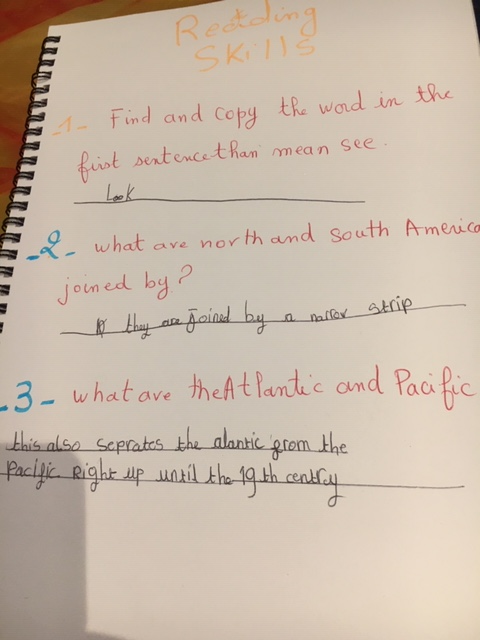 Reading
Skills
-1- Find and copy the word in the
first sentence than mean see.
Look
-2- what are north and south America
joined by?
they are joined by a narrow strip
-3- what are the Atlantic and Pacific
this also seprates the alantic from the
Pacific Right up until the 19th centry